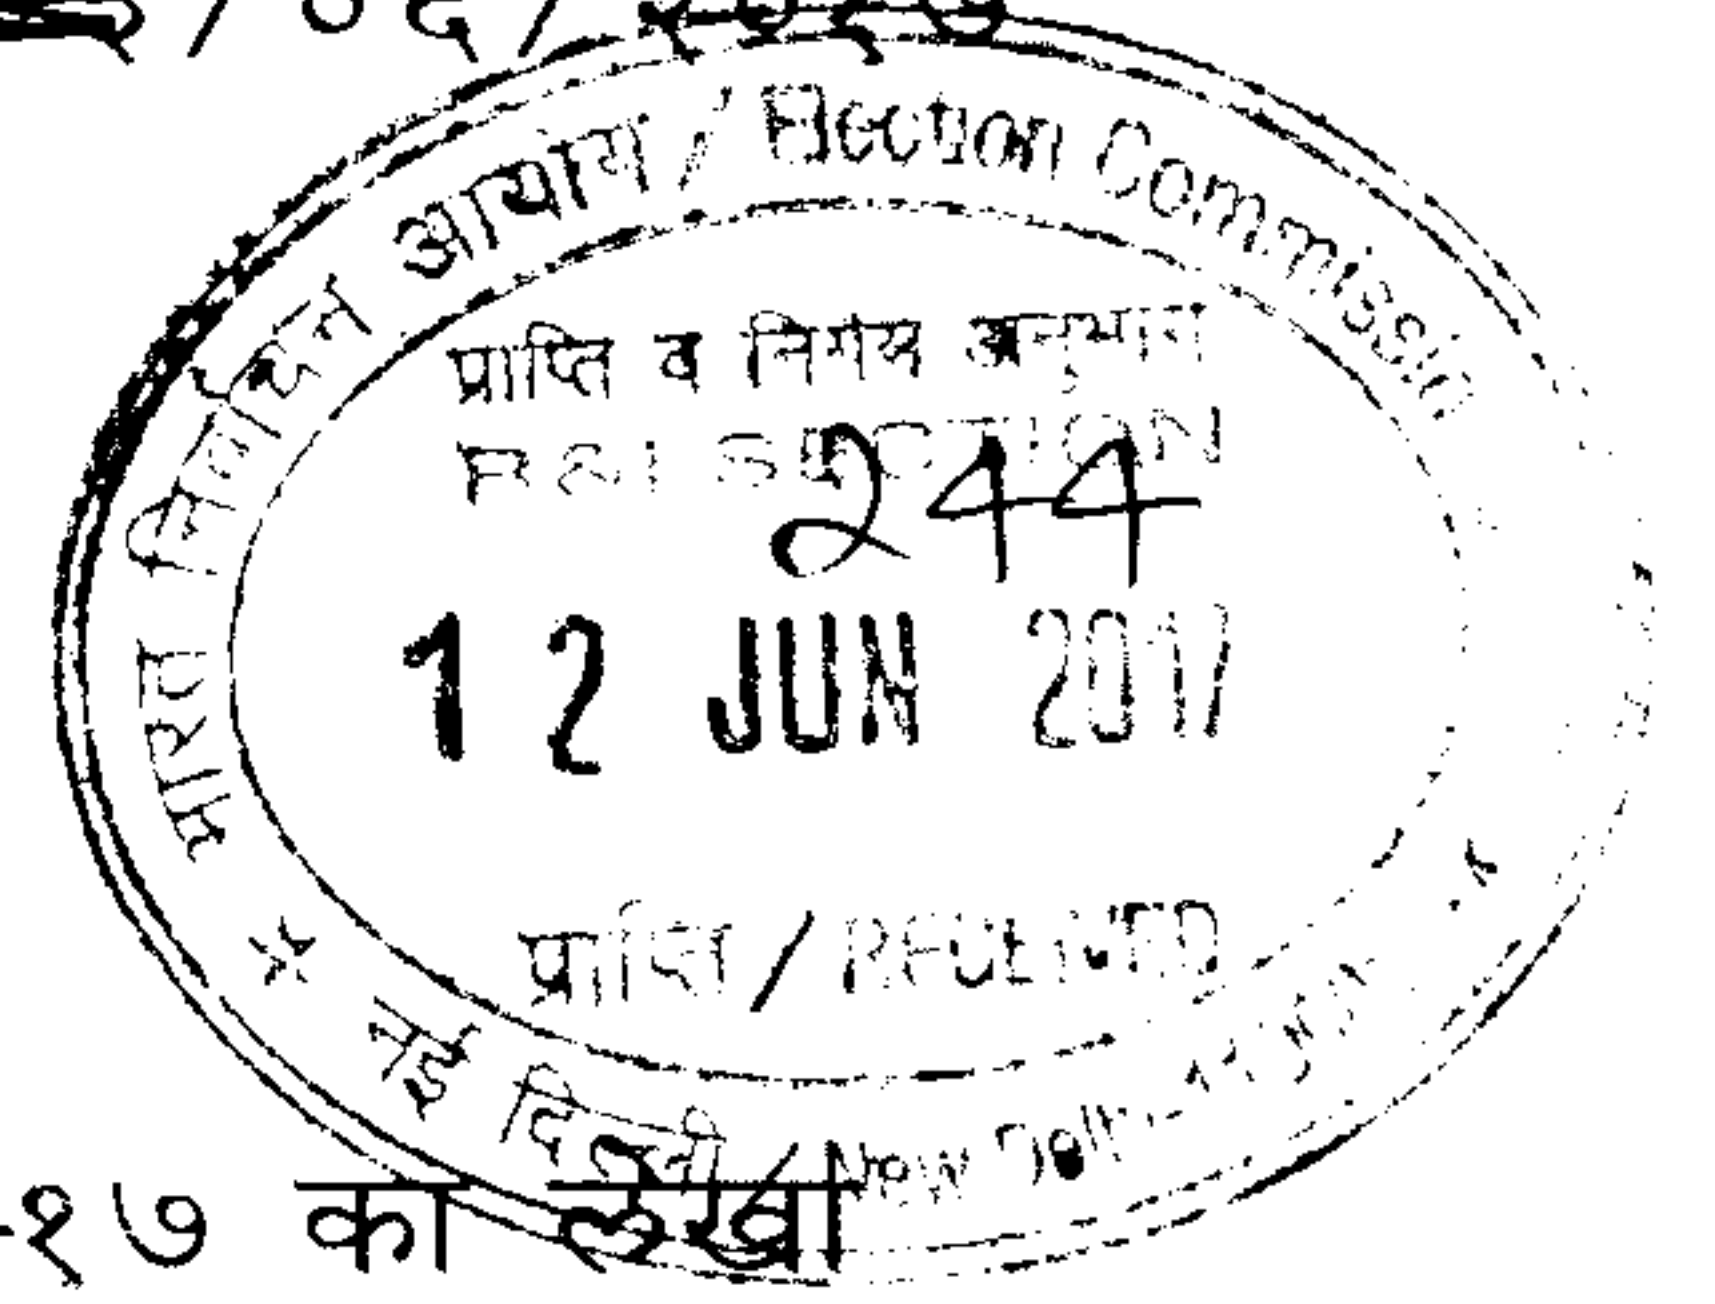 /०६/२०१७
भारत निर्वाचन आयोग / Election Commission
प्राप्ति व निर्गम अनुभाग
R & I SECTION
244
12 JUN 2017
प्राप्ति / RECEIVED
नई दिल्ली / New Delhi
-१७ का लेखा